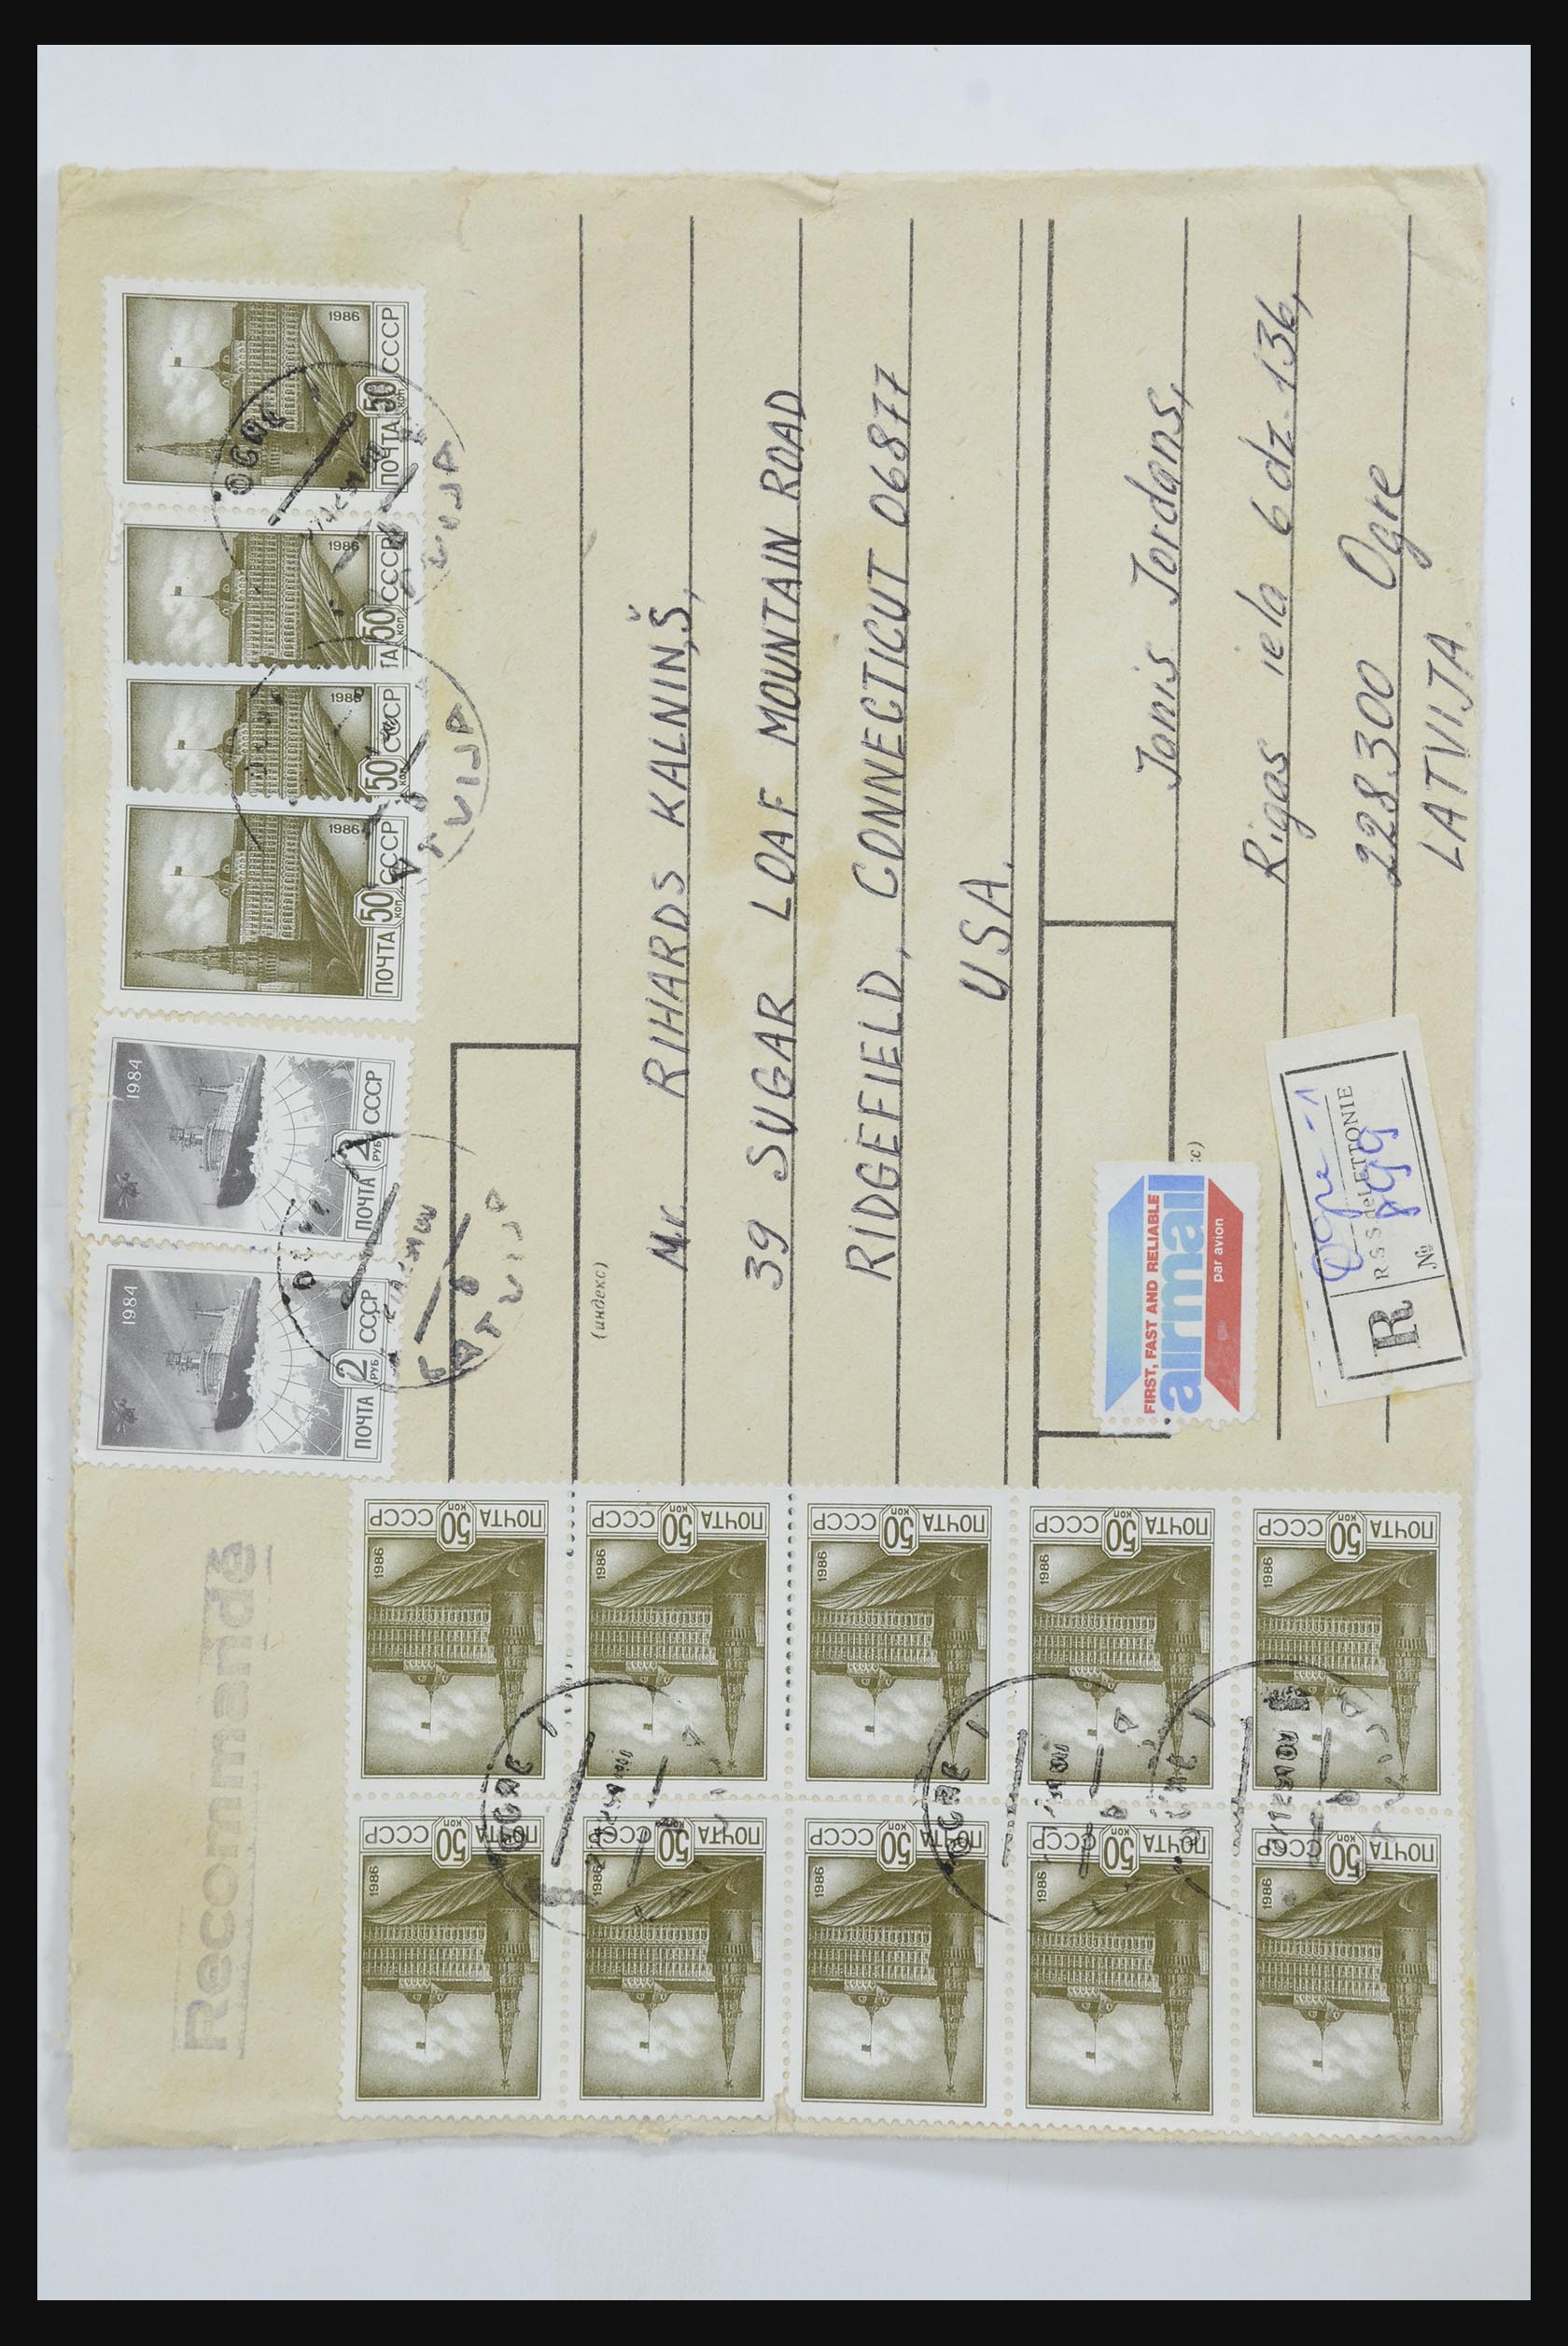 Recommandé
1984
ПОЧТА 2 РУБ СССР
1984
ПОЧТА 2 РУБ СССР
1986
ПОЧТА 50 КОП СССР
1986
50 КОП СССР
1986
ТА 50 КОП СССР
1986
ПОЧТА 50 КОП СССР
OGRE
LATVIJA
(индекс)
Mr. RIHARDS KALNIŅŠ,
39 SUGAR LOAF MOUNTAIN ROAD
RIDGEFIELD, CONNECTICUT 06877
USA.
FIRST, FAST AND RELIABLE
airmail
par avion
Janis Jordans,
Rigas iela 6 dz. 136,
228300 Ogre
LATVIJA.
R
Ogre-1
RSS de LETTONIE
№ 899
ПОЧТА 50 КОП СССР
1986
ПОЧТА 50 КОП СССР
1986
ПОЧТА 50 КОП СССР
1986
ПОЧТА 50 КОП СССР
1986
ПОЧТА 50 КОП СССР
1986
ПОЧТА 50 КОП СССР
1986
ПОЧТА 50 КОП СССР
1986
ПОЧТА 50 КОП СССР
1986
ПОЧТА 50 КОП СССР
1986
ПОЧТА 50 КОП СССР
1986
OGRE
OGRE